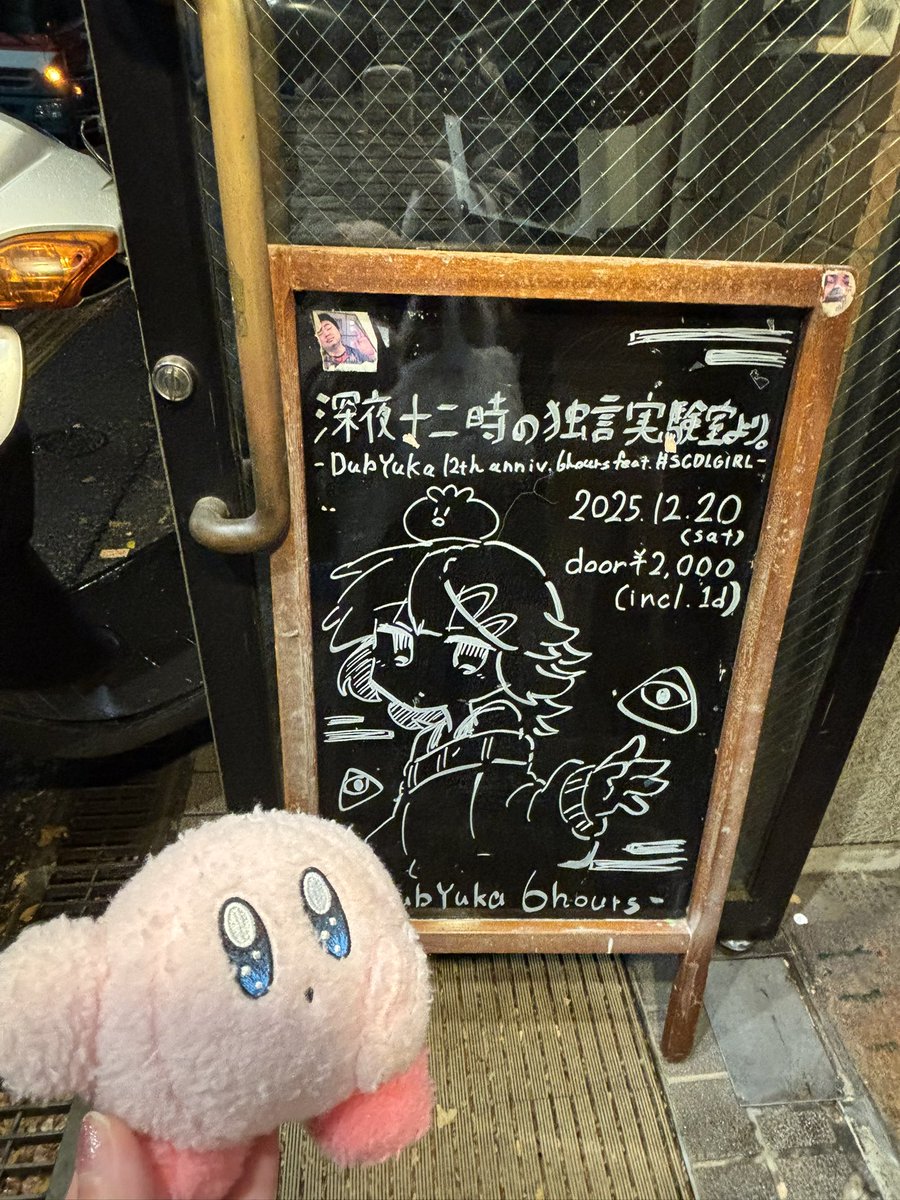 深夜十二時の独言実験室より。
-DubYuka 12th anniv. 6hours feat. #SCDLGIRL-
2025.12.20
(sat)
door¥2,000
(incl. 1d)
ubYuka 6hours-